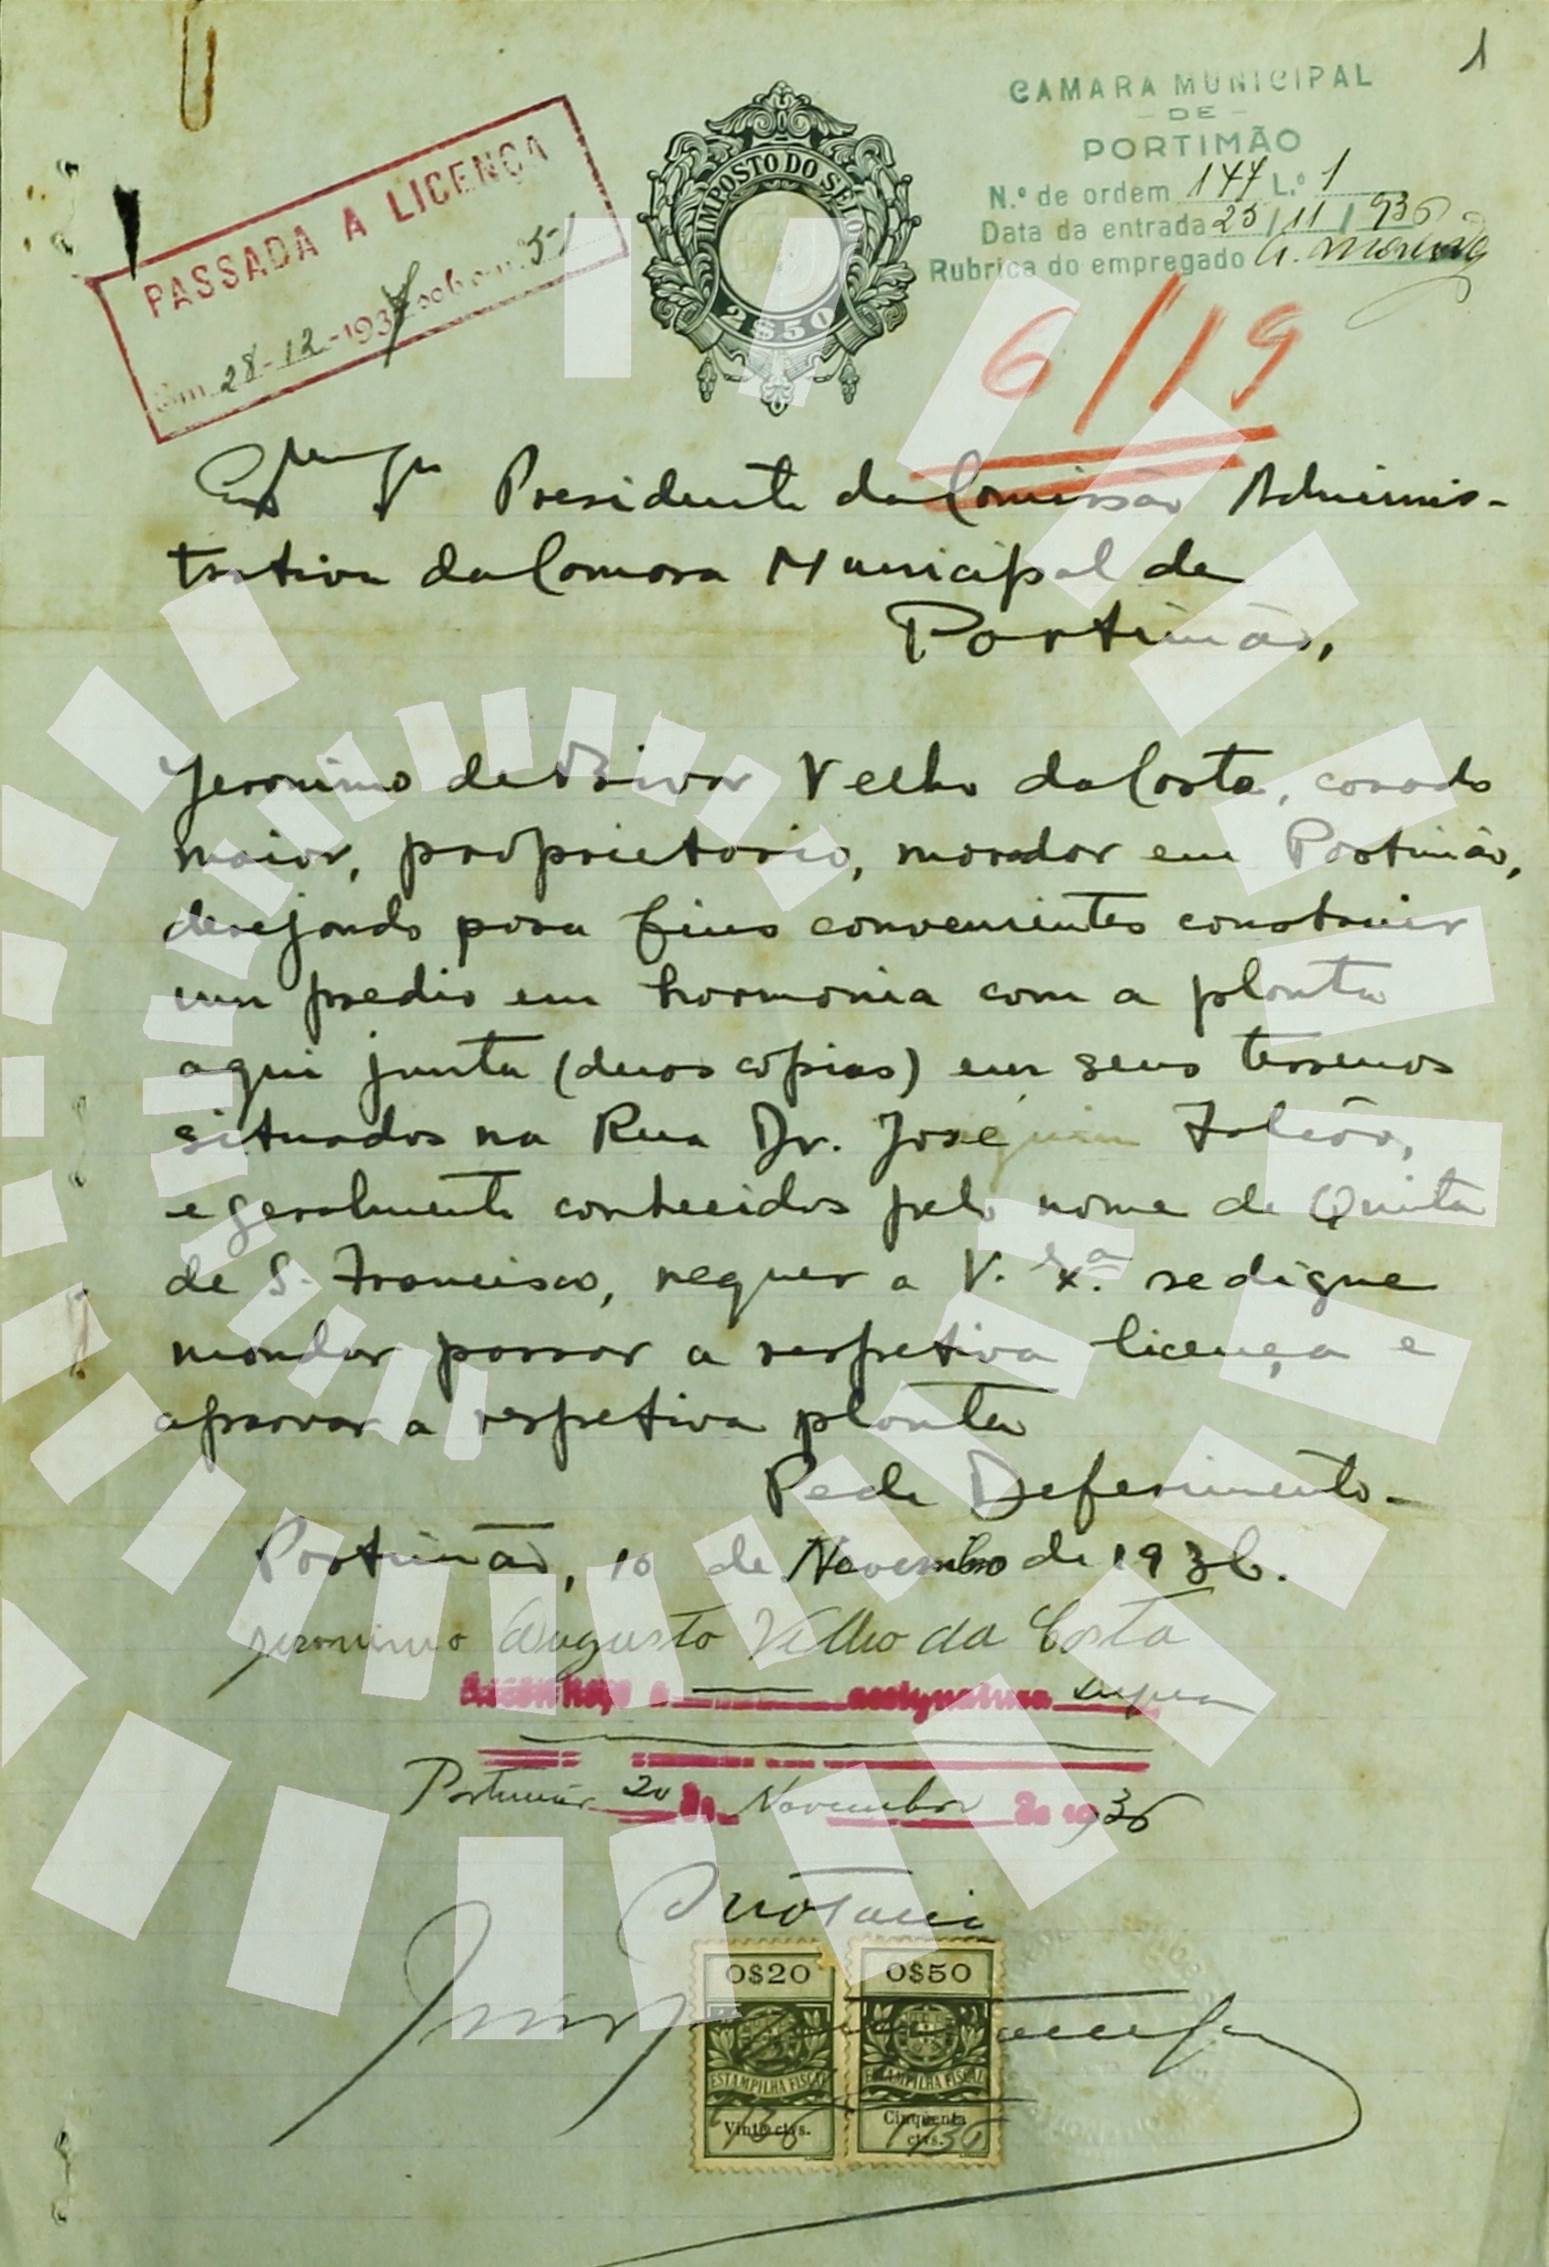 1
CAMARA MUNICIPAL
- DE -
PORTIMÃO
N.º de ordem 144 L.º 1
Data da entrada 25/11/936
Rubrica do empregado
PASSADA A LICENÇA
Em 28-12-193 sob o n.º 51
IMPOSTO DO SELO
2$50
6/19
Presidente da Comissão Adminis-
trativa da Camara Municipal de
Portimão,
Jeronimo de Bivar Velho da Costa, casado
maior, proprietario, morador em Portimão,
desejando para fins convenientes construir
um predio em harmonia com a planta
aqui junta (duas copias) em seus terrenos
situados na Rua Dr. José Falcão,
e geralmente conhecidos pelo nome de Quinta
de S. Francisco, requer a V. Exª. se digne
mandar passar a respetiva licença e
aprovar a respetiva planta
Pede Deferimento-
Portimão, 10 de Novembro de 1936.
Jeronimo Augusto Velho da Costa
assignatura supra
Portimão 20 de Novembro de 1936
O notario
0$20 0$50
ESTAMPILHA FISCAL ESTAMPILHA FISCAL
Vinte ctvs. Cinqüenta
ctvs.
1936 1936